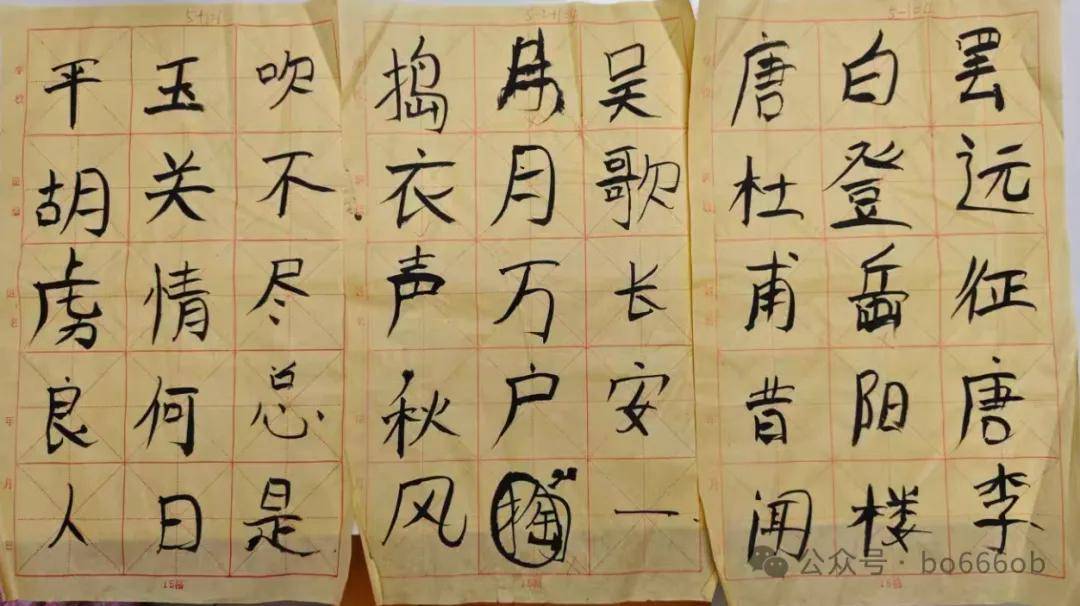 吴歌长安一
月万户掏
捣衣声秋风
吹不尽总是
玉关情何日
平胡虏良人
罢远征唐李
白登岳阳楼
唐杜甫昔闻
5-1=4
公众号·bo666ob